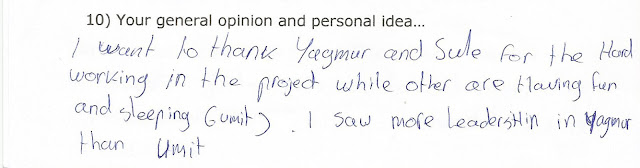 10) Your general opinion and personal idea...
I want to thank Yagmur and Sule for the Hard
working in the project while other are Having fun
and sleeping (umit) . I saw more LeadersHip in Yagmur
than Umit